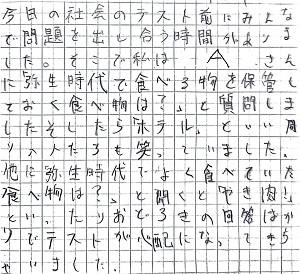 今日の社会のテスト前にみんな
で問題を出し合う時間がありま
した。そこで私は A さん
に弥生時代で食べる物を保管し
ておく食べ物は?」と質問しま
したそしたら「ホテル」といい周
りの人たちも笑っていました。
他に弥生時代でよく食べていた
食べ物は?」と聞くと「やき肉!」
といったりおどろきの回答ばか
りでテストが心配になってきち
ゃいました。